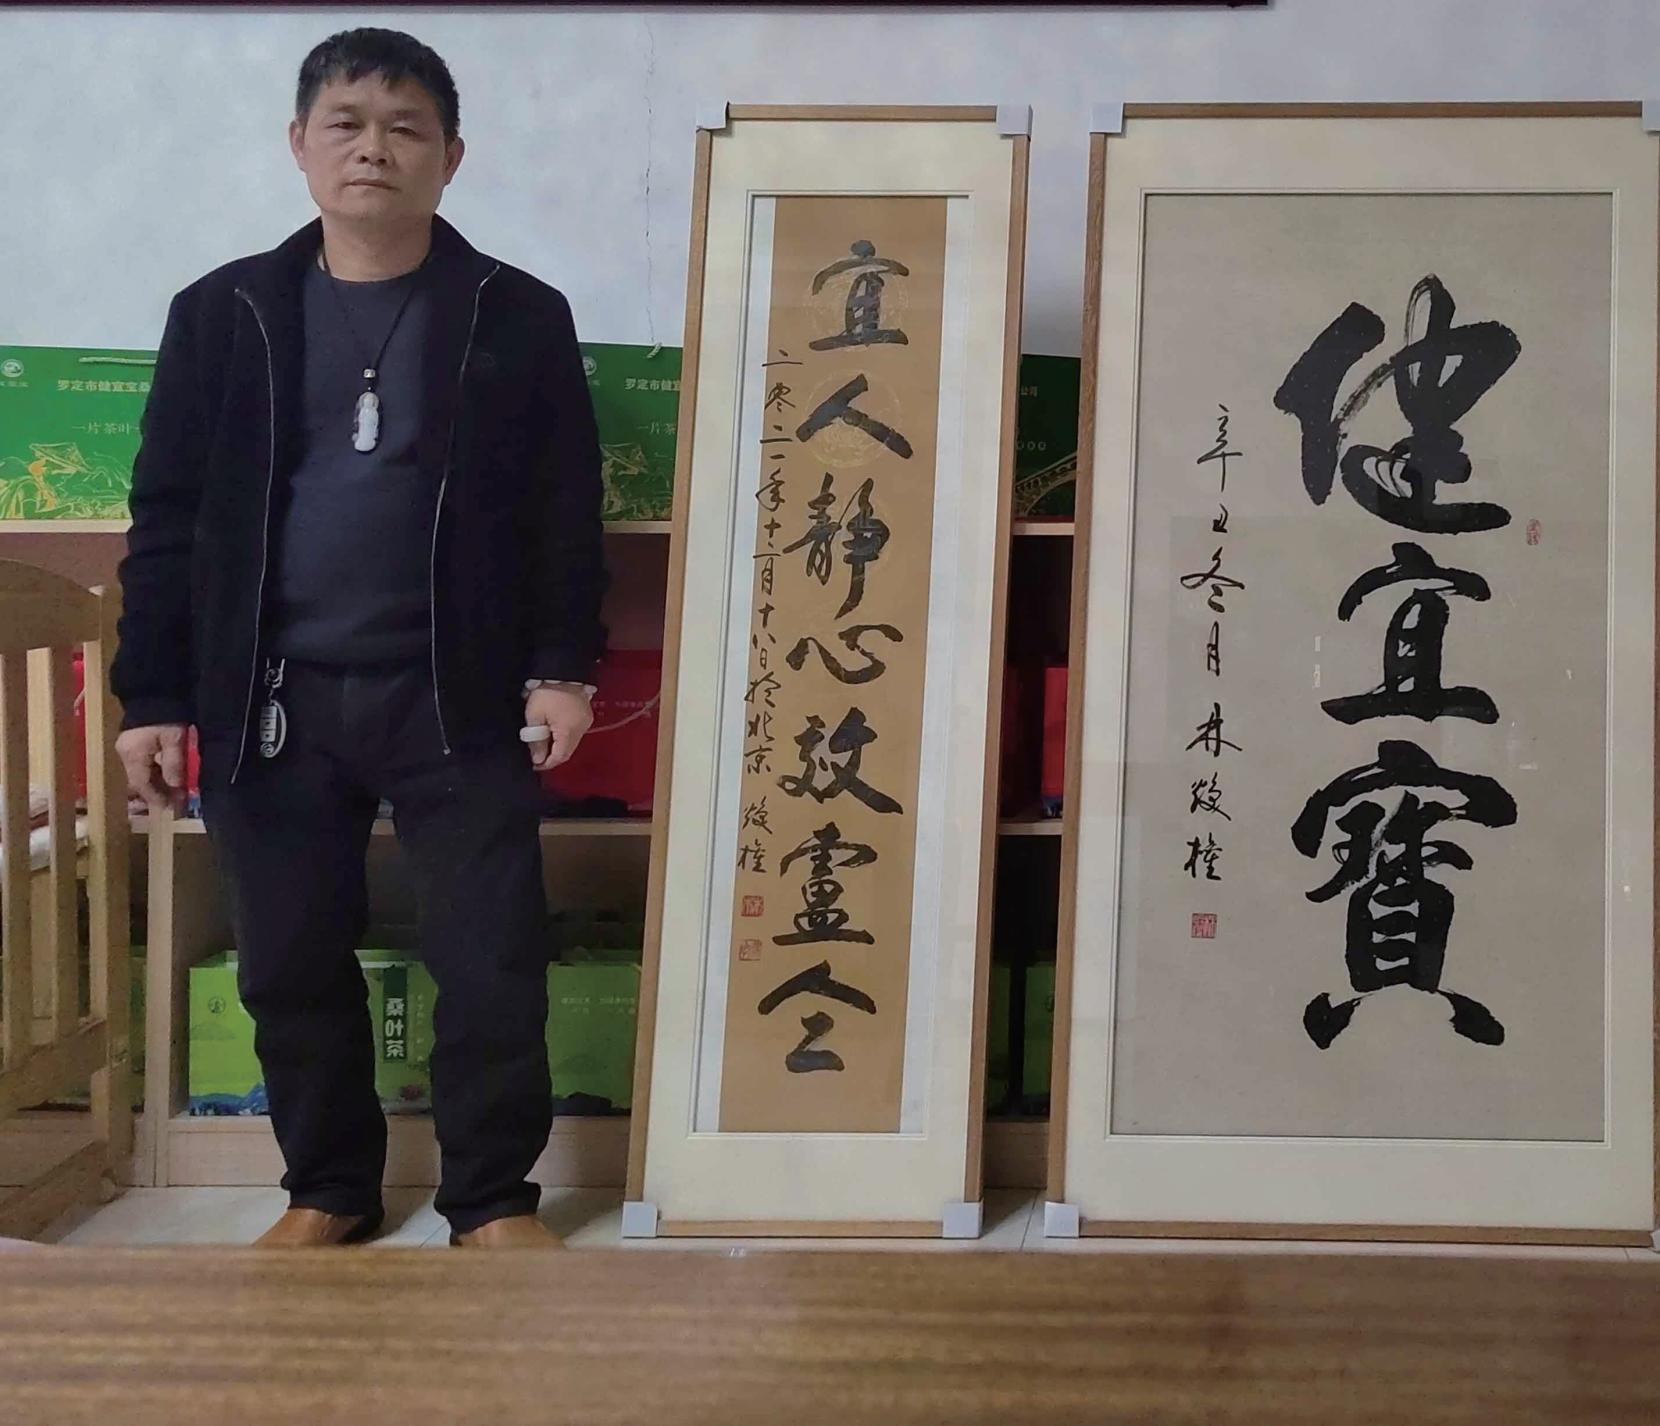 健宜寶
辛丑冬月 林
宜人静心效靈仝
二零二一年十二月十八日於北京
罗定市健宜宝桑
一片茶叶
罗定市健宜宝
一片茶
公司
桑叶茶